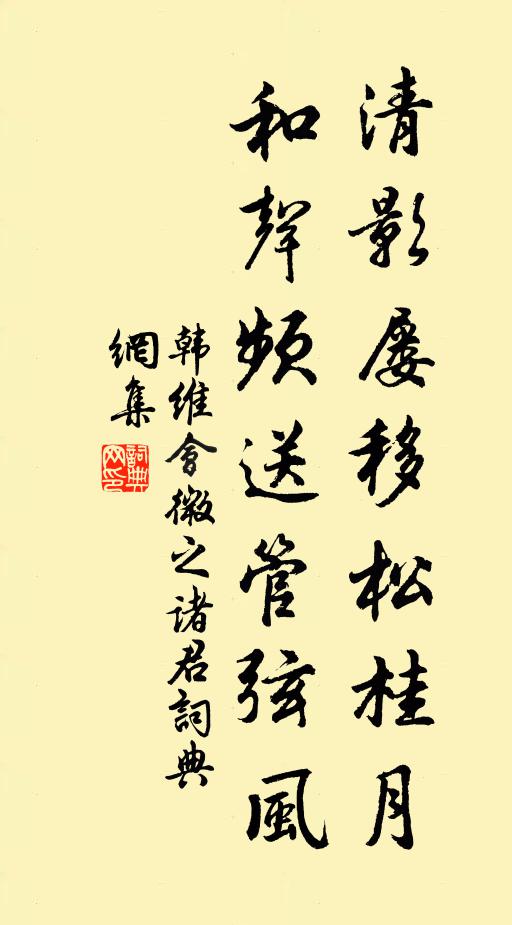 清影屡移松桂月
和聲频送管弦風
韩维會微之诸君詞典
網集
詞典网印